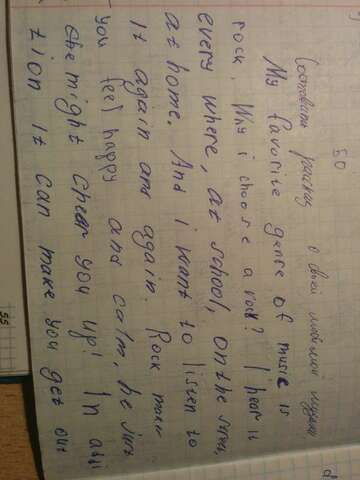 50
Составить рассказ о своей любимой музыке
My favorite genre of music is
rock. Why i choose a rock? I hear it
every where, at school, on the street,
at home. And i want to listen to
it again and again. Rock make
you feel happy and calm, he just
the might chear you up! In addi
tion it can make you get out
55
d